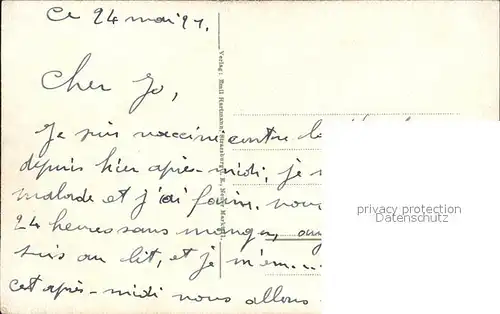 Ce 24 mai 27.
Cher Jo,
Je suis vaccin contre la
depuis hier après-midi, je
malade et j'ai faim. nous
24 heures sans manger,
suis au lit, et je m'em...
cet après-midi nous allons
Verlag: Emil Hartmann, Strassburg i. E., Neuer Markt
privacy protection
Datenschutz